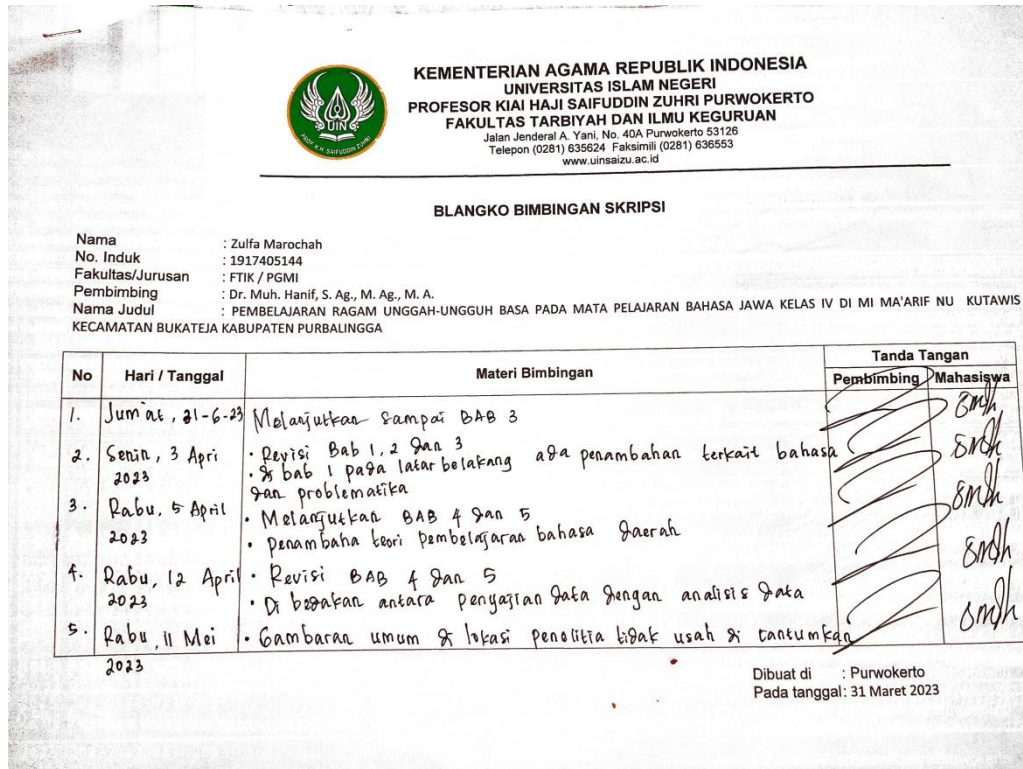 KEMENTERIAN AGAMA REPUBLIK INDONESIA
UNIVERSITAS ISLAM NEGERI
PROFESOR KIAI HAJI SAIFUDDIN ZUHRI PURWOKERTO
FAKULTAS TARBIYAH DAN ILMU KEGURUAN
Jalan Jenderal A. Yani, No. 40A Purwokerto 53126
Telepon (0281) 635624 Faksimili (0281) 636553
www.uinsaizu.ac.id
UIN
PROF. K.H. SAIFUDDIN ZUHRI
BLANGKO BIMBINGAN SKRIPSI
Nama : Zulfa Marochah
No. Induk : 1917405144
Fakultas/Jurusan : FTIK / PGMI
Pembimbing : Dr. Muh. Hanif, S. Ag., M. Ag., M. A.
Nama Judul : PEMBELAJARAN RAGAM UNGGAH-UNGGUH BASA PADA MATA PELAJARAN BAHASA JAWA KELAS IV DI MI MA'ARIF NU KUTAWIS
KECAMATAN BUKATEJA KABUPATEN PURBALINGGA
No Hari / Tanggal Materi Bimbingan Tanda Tangan
Pembimbing Mahasiswa
1. Jum'at, 31-6-23 Melanjutkan sampai BAB 3
2. Senin, 3 Apri 2023
• Revisi Bab 1, 2 dan 3
• di bab 1 pada latar belakang ada penambahan terkait bahasa
dan problematika
3. Rabu, 5 April 2023
• Melanjutkan BAB 4 dan 5
• penambaha teori pembelajaran bahasa daerah
4. Rabu, 12 April 2023
• Revisi BAB 4 dan 5
• Di bedakan antara penyajian data dengan analisis data
5. Rabu, 11 Mei 2023
• Gambaran umum di lokasi penelitia tidak usah di cantumkan
Dibuat di : Purwokerto
Pada tanggal: 31 Maret 2023